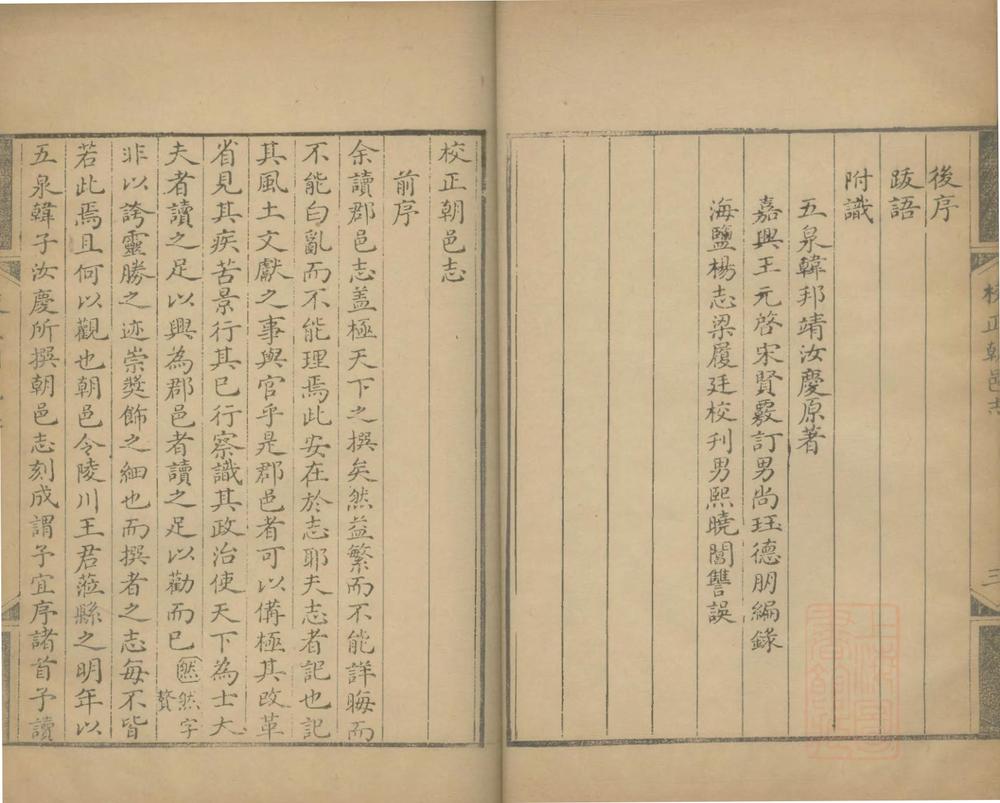 後序
跋語
附識
五泉韓邦靖汝慶原著
嘉興王元啓宋賢覈訂男尚珏德朋編錄
海鹽楊志梁履廷校刊男熙曉閶讐誤
校正朝邑志
前序
余讀郡邑志盖極天下之撰矣然益繁而不能詳晦而
不能白亂而不能理焉此安在於志耶夫志者記也記
其風土文獻之事與官乎是郡邑者可以僃極其改革
省見其疾苦景行其已行察識其政治使天下為士大
夫者讀之足以興為郡邑者讀之足以勸而已然然字贅
非以誇靈勝之迹崇奬飾之細也而撰者之志每不皆
若此焉且何以觀也朝邑令陵川王君蒞縣之明年以
五泉韓子汝慶所撰朝邑志刻成謂予宜序諸首予讀